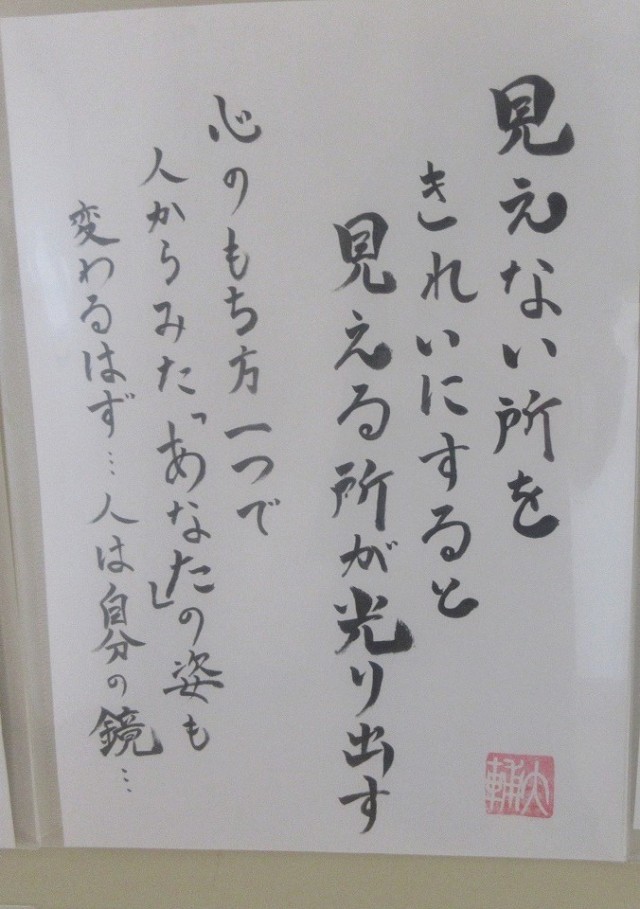 見えない所を
きれいにすると
見える所が光り出す
心のもち方一つで
人からみた「あなた」の姿も
変わるはず…人は自分の鏡…
大輔